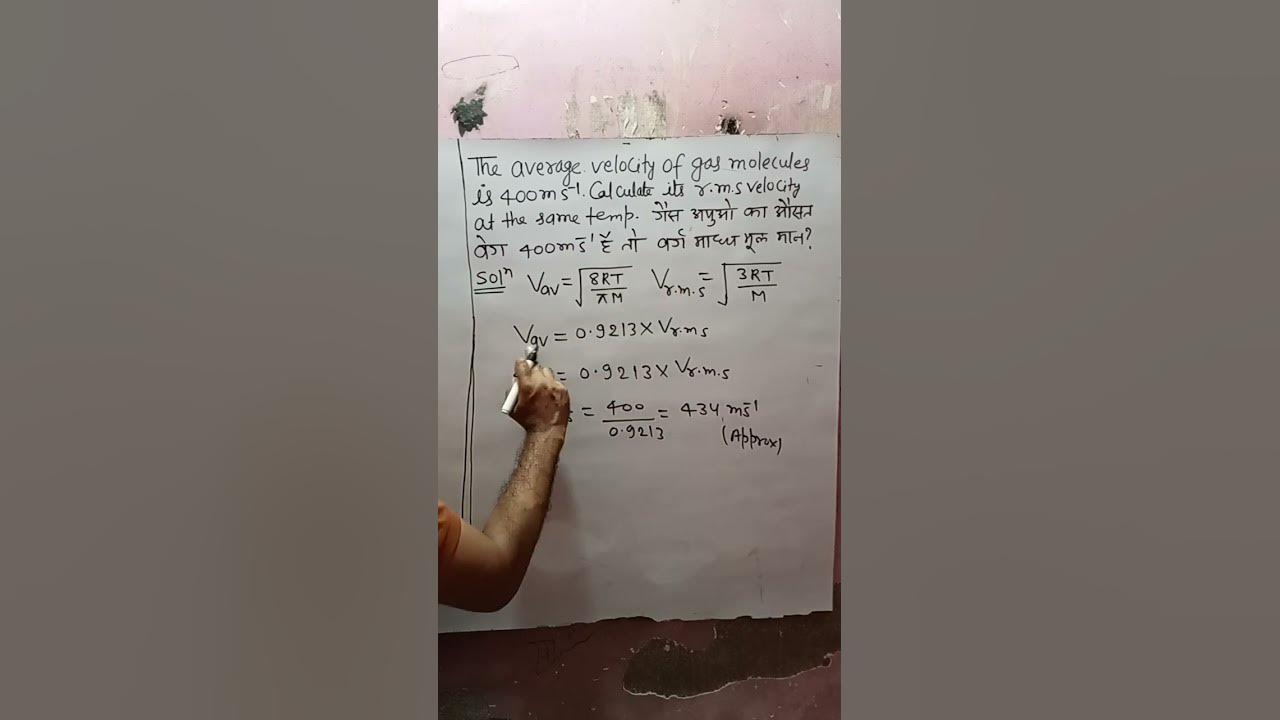 The average velocity of gas molecules
is 400 m s⁻¹. Calculate its r.m.s velocity
at the same temp. गैस अणुओ का औसत
वेग 400 m s⁻¹ है तो वर्ग माध्य मूल मान?
Solⁿ Vav = √(8RT/πM) Vr.m.s = √(3RT/M)
Vav = 0.9213 × Vr.m.s
= 0.9213 × Vr.m.s
s = 400/0.9213 = 434 m s⁻¹
(Approx)